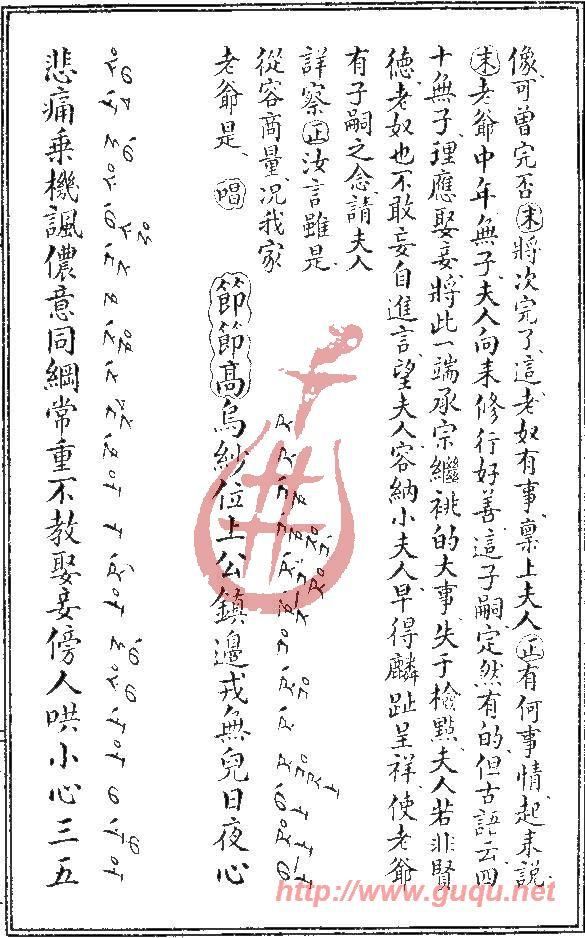 像、可曾完否、末將次完了、這老奴有事稟上夫人、正有何事情、起來說、
末老爺中年無子、夫人向來修行好善、這子嗣定然有的、但古語云、四
十無子、理應娶妾、將此一端承宗繼祧的大事、失于檢點、夫人若非賢
德、老奴也不敢妄自進言、望夫人容納小夫人、早得麟趾呈祥、使老爺
有子嗣之念、請夫人
詳察、正汝言雖是、
從容商量、況我家
老爺是、唱
節節高烏紗位上公鎮邊戎無兒日夜心
悲痛乗機諷儂意同綱常重不教娶妾傍人哄小心三五
http://www.guqu.net